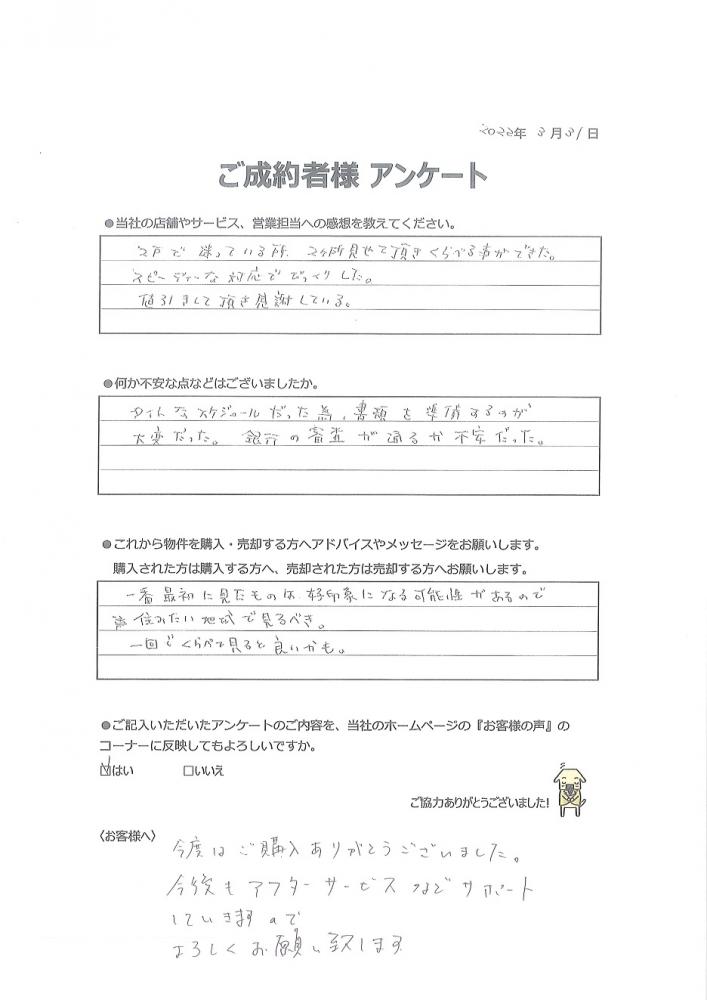 2022年 3月31日
ご成約者様 アンケート
●当社の店舗やサービス、営業担当への感想を教えてください。
2戸で迷っている所、2ヶ所見せて頂きくらべる事ができた。
スピーディーな対応でびっくりした。
値引きして頂き感謝している。
●何か不安な点などはございましたか。
タイトなスケジュールだった為、書類を準備するのが
大変だった。 銀行の審査が通るか不安だった。
●これから物件を購入・売却する方へアドバイスやメッセージをお願いします。
購入された方は購入する方へ、売却された方は売却する方へお願いします。
一番最初に見たものは好印象になる可能性があるので
住みたい地域で見るべき。
一回でくらべて見ると良いかも。
●ご記入いただいたアンケートのご内容を、当社のホームページの『お客様の声』の
コーナーに反映してもよろしいですか。
☑はい □いいえ
ご協力ありがとうございました!
〈お客様へ〉
今度はご購入ありがとうございました。
今後もアフターサービスなどサポート
していきますので
よろしくお願い致します